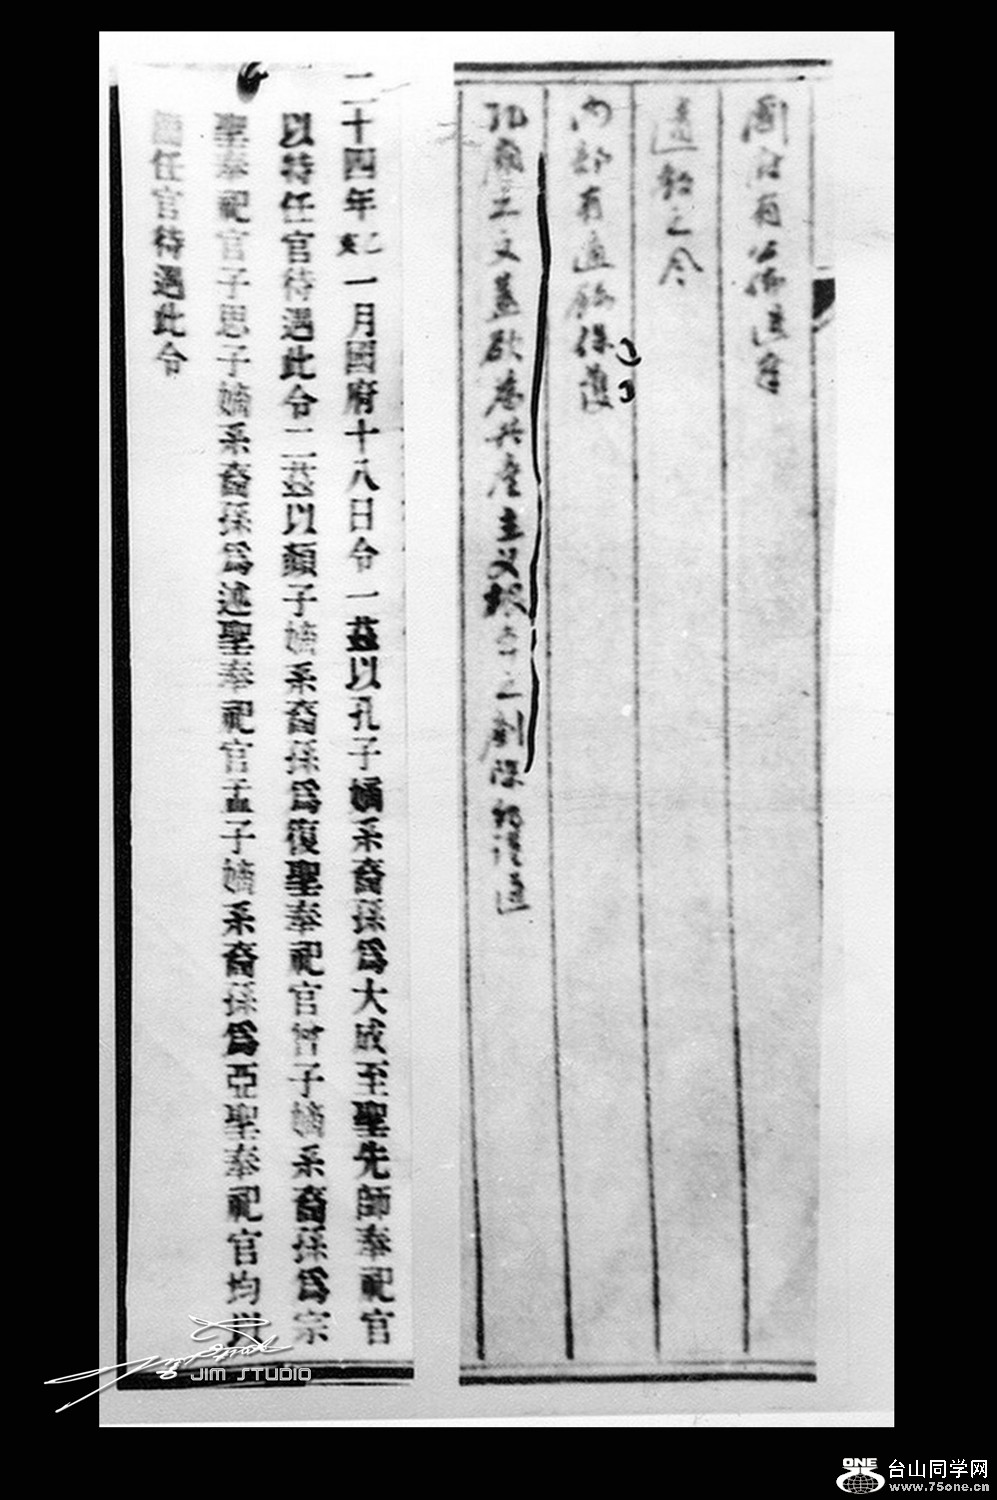 國府有公佈道身
遺教之令
內部有通飭保護
孔廟之文蓋欲為共產主义根本之剷除
二十四年紀一月國府十八日令一茲以孔子嫡系裔孫爲大成至聖先師奉祀官
以特任官待遇此令二茲以顏子嫡系裔孫爲復聖奉祀官曾子嫡系裔孫爲宗
聖奉祀官子思子嫡系裔孫爲述聖奉祀官孟子嫡系裔孫爲亞聖奉祀官均以
任官待遇此令
JIM STUDIO
ONE
台山同学网
www.75one.cn